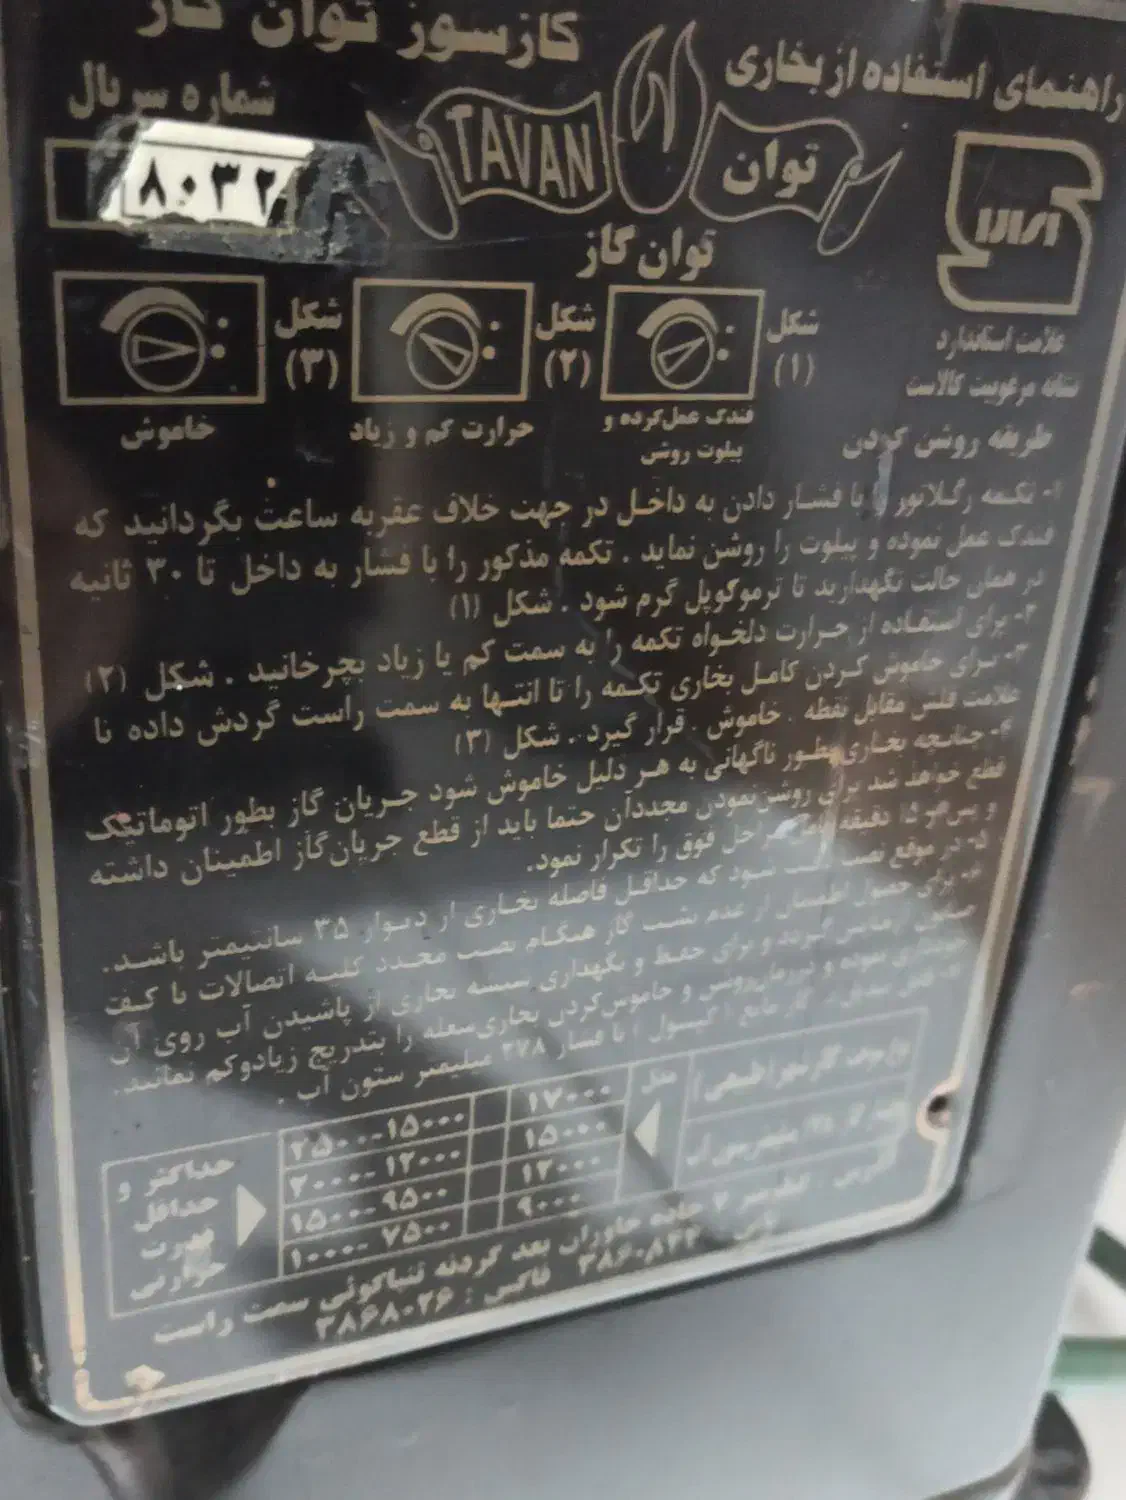 راهنمای استفاده از بخاری گازسوز توان گاز
شماره سریال
۸۰۳۲
TAVAN
توان
توان گاز
علامت استاندارد
نشانه مرغوبیت کالاست
شکل (۱)
فندک عمل کرده و
پیلوت روشن
شکل (۲)
حرارت کم و زیاد
شکل (۳)
خاموش
طریقه روشن کردن
۱- تکمه رگلاتور را با فشار دادن به داخل در جهت خلاف عقربه ساعت بگردانید که
فندک عمل نموده و پیلوت را روشن نماید . تکمه مذکور را با فشار به داخل تا ۳۰ ثانیه
در همان حالت نگهدارید تا ترموکوپل گرم شود . شکل (۱)
۲- برای استفاده از حرارت دلخواه تکمه را به سمت کم یا زیاد بچرخانید . شکل (۲)
۳- برای خاموش کردن کامل بخاری تکمه را تا انتها به سمت راست گردش داده تا
علامت فلش مقابل نقطه . خاموش . قرار گیرد . شکل (۳)
۴- چنانچه بخاری بطور ناگهانی به هر دلیل خاموش شود جریان گاز بطور اتوماتیک
قطع خواهد شد برای روشن نمودن مجددآن حتما باید از قطع جریان گاز اطمینان داشته
و پس از ۵ دقیقه مراحل فوق را تکرار نمود.
۵- در موقع نصب شود که حداقل فاصله بخاری از دیوار ۳۵ سانتیمتر باشد.
۶- برای حصول اطمینان از عدم نشت گاز هنگام نصب مجدد کلیه اتصالات با کف
صابون آزمایش گردد و برای حفظ و نگهداری شیشه بخاری از پاشیدن آب روی آن
خودداری نموده و روشن و خاموش کردن بخاری شعله را بتدریج زیاد و کم نمائید.
گاز مایع (کپسول) با فشار ۲۷۸ میلیمتر ستون آب .
مدل
۱۷۰۰۰ ۲۵۰۰۰-۱۵۰۰۰
۱۵۰۰۰ ۲۰۰۰۰-۱۲۰۰۰
۱۲۰۰۰ ۱۵۰۰۰-۹۵۰۰
۹۰۰۰ ۱۰۰۰۰-۷۵۰۰
حداکثر و
حداقل
قدرت
حرارتی
آدرس : کیلومتر ۷ جاده خاوران بعد گردنه تنباکوئی سمت راست
۳۸۶۰۸۴۳ فاکس : ۳۸۶۸۰۲۶